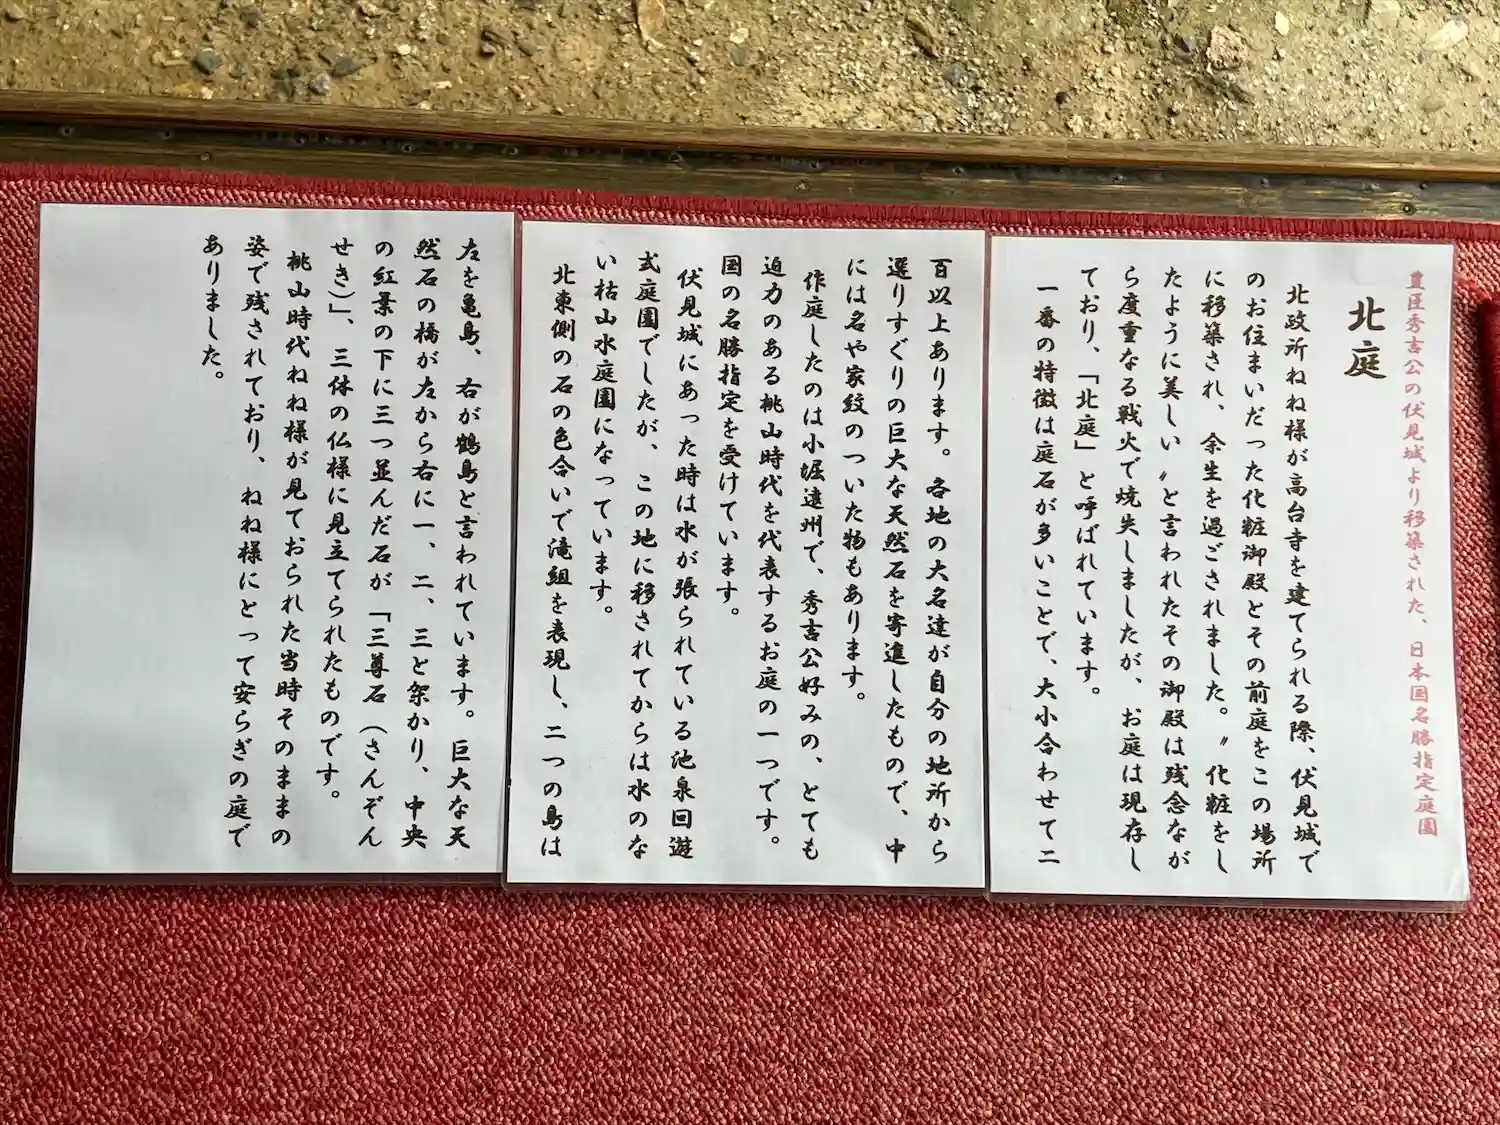 豊臣秀吉公の伏見城より移築された、日本国名勝指定庭園
北庭
北政所ねね様が高台寺を建てられる際、伏見城で
のお住まいだった化粧御殿とその前庭をこの場所
に移築され、余生を過ごされました。〃化粧をし
たように美しい〃と言われたその御殿は残念なが
ら度重なる戦火で焼失しましたが、お庭は現存し
ており、「北庭」と呼ばれています。
一番の特徴は庭石が多いことで、大小合わせて二
百以上あります。各地の大名達が自分の地所から
選りすぐりの巨大な天然石を寄進したもので、中
には名や家紋のついた物もあります。
作庭したのは小堀遠州で、秀吉公好みの、とても
迫力のある桃山時代を代表するお庭の一つです。
国の名勝指定を受けています。
伏見城にあった時は水が張られている池泉回遊
式庭園でしたが、この地に移されてからは水のな
い枯山水庭園になっています。
北東側の石の色合いで滝組を表現し、二つの島は
左を亀島、右が鶴島と言われています。巨大な天
然石の橋が左から右に一、二、三と架かり、中央
の紅葉の下に三つ並んだ石が「三尊石(さんぞん
せき)」、三体の仏様に見立てられたものです。
桃山時代ねね様が見ておられた当時そのままの
姿で残されており、ねね様にとって安らぎの庭で
ありました。